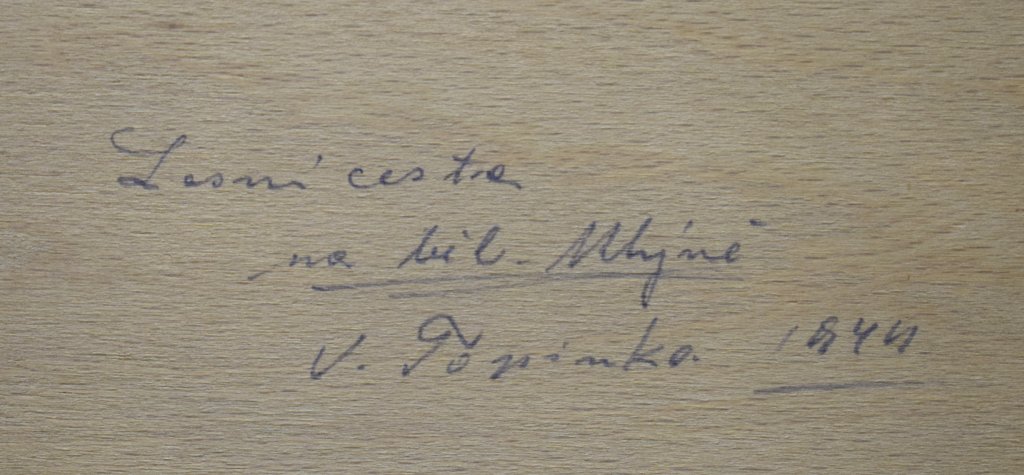 Lesní cesta
na bíl. Mlýně
V. Töpinka 1944